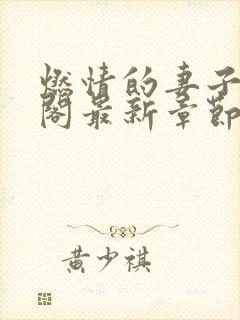 燃情的妻子
阁最新章节
黄少祺